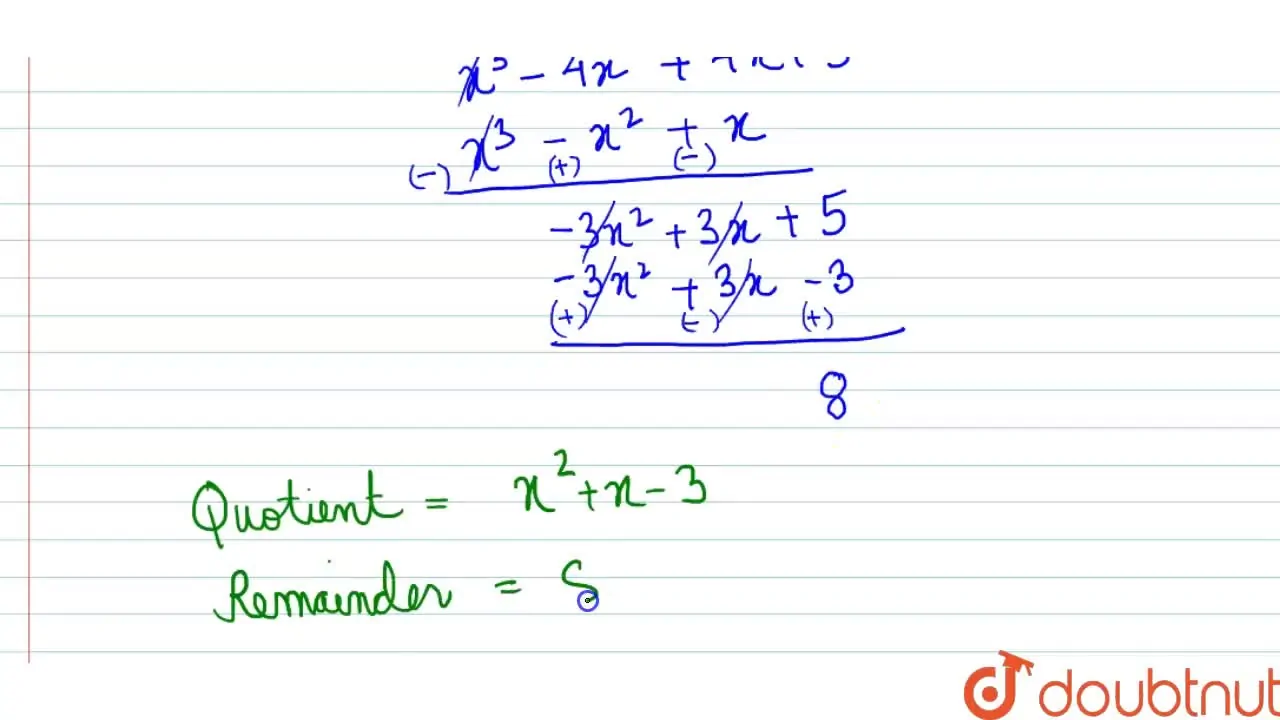 x³ - 4x + 4x + 5
x³ - x² + x
(-) (+) (-)
-3x² + 3x + 5
-3x² + 3x - 3
(+) (-) (+)
8
Quotient = x² + x - 3
Remainder = 8
doubtnut